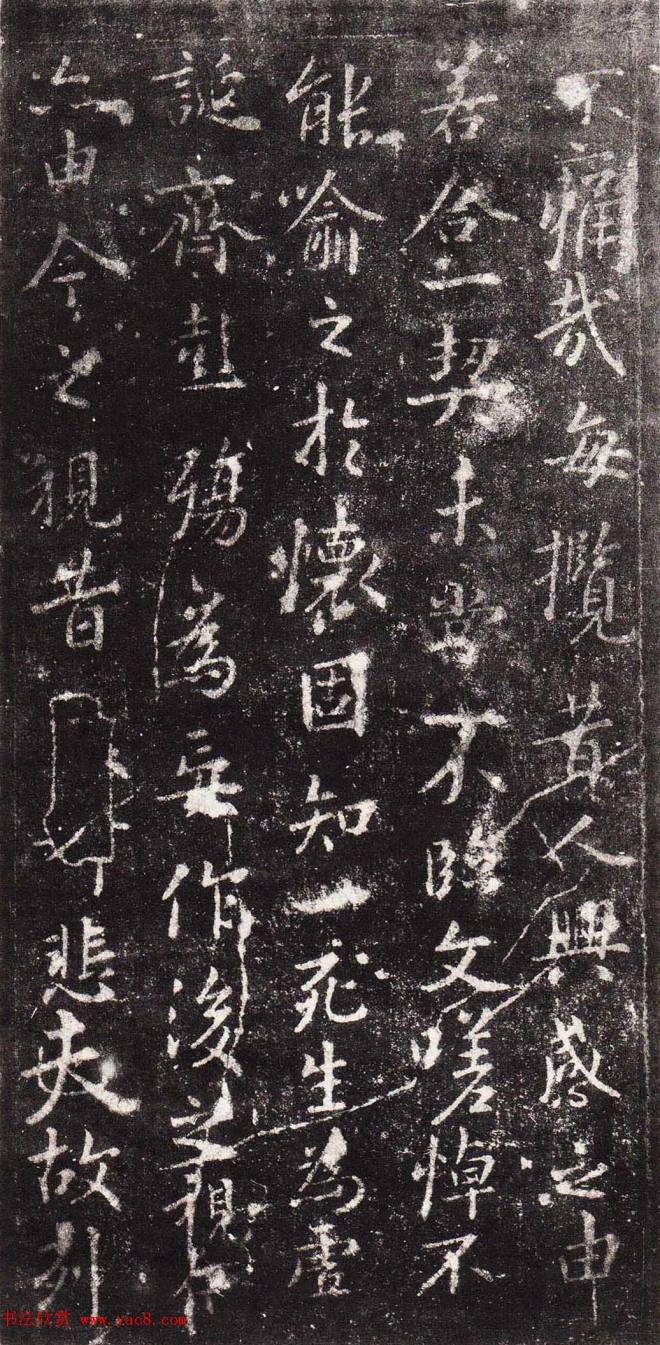 不痛哉每攬昔人興感之由
若合一契未嘗不臨文嗟悼不
能喻之於懷固知一死生為虛
誕齊彭殤為妄作後之視今
亦由今之視昔悲夫故列
书法欣赏 www.yac8.com